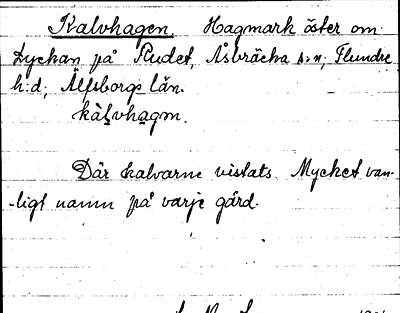 Kalvhagen Hagmark öster om
Lyckan på Rudet, Åsbräcka s:n, Flundre
h:d, Älfsborgs län.
kàlvhagm.
Där kalvarne vistats. Mycket van-
-ligt namn på varje gård.